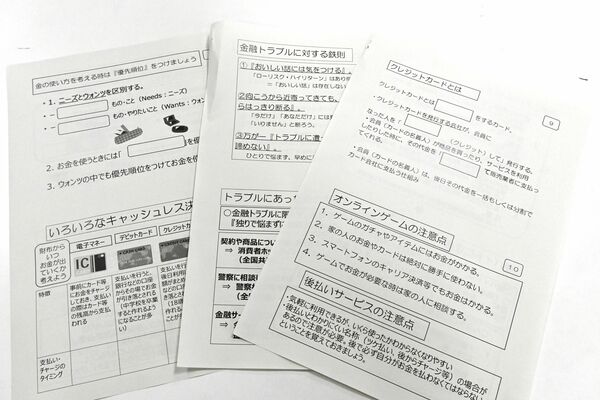 金の使い方を考える時は『優先順位』をつけましょう
・1. ニーズとウォンツを区別する。
もの・こと（Needs：ニーズ）
もの・やりたいこと（Wants：ウォン
2. お金を使うときには「
3. ウォンツの中でも優先順位をつけてお金を使
いろいろなキャッシュレス決
財布から
いつ
お金が出
ていくか
考えよう
電子マネー
デビットカード
クレジットカ
IC
特徴
事前にカード等
にお金をチャージ
しておき、支払い
の際はカード等
の残高から支払
われる
支払いを行うと、
銀行などの口座
からその場でお金
が引き落とされる
（中学校を卒業
すると作れるよう
になることが多
い）
支払い・
チャージの
タイミング
金融トラブルに対する鉄則
①『おいしい話には気をつける』。
「ローリスク・ハイリターン」はあり得
＝「おいしい話」は存在しない
②向こうから近寄ってきても、
らはっきり断る』。
「今だけ」「あなただけ」には
「いりません」と断ろう。
③万が一『トラブルに遭っ
諦めない』。
ひとりで悩まず、早めに
トラブルにあっ
○金融トラブルに限
『独りで悩まずに
契約や商品につい
⇒ 消費者ホッ
（全国共
警察に相談
⇒ 警察
（全
金融サー
⇒ 金
クレジットカードとは
クレジットカードとは
をするカード。
・クレジットカードを発行する会社が、会員に
なった人を「
（クレジット）して」発行する。
・会員（カードの名義人）が商品を買ったり、サービスを利用
したりした時に、その代金を
て販売業者に支払っ
てくれる。
・会員（カードの名義人）は、後日その代金を一括もしくは分割で
カード会社に支払う仕組み
9
オンラインゲームの注意点
1. ゲームのガチャやアイテムにはお金がかかる。
2. 家の人のお金やカードは絶対に勝手に使わない。
3. スマートフォンのキャリア決済等でもお金はかかる。
4. ゲームでお金が必要な時は家の人に相談する。
10
後払いサービスの注意点
・気軽に利用できるが、いくら使ったかわからなくなりやすい
・後払いとわかりにくい名称（ツケ払い、後からチャージ等）の場合が
あるので注意が必要。後で必ず自分がお金を払わなくてはならない
ということを覚えておきましょう。